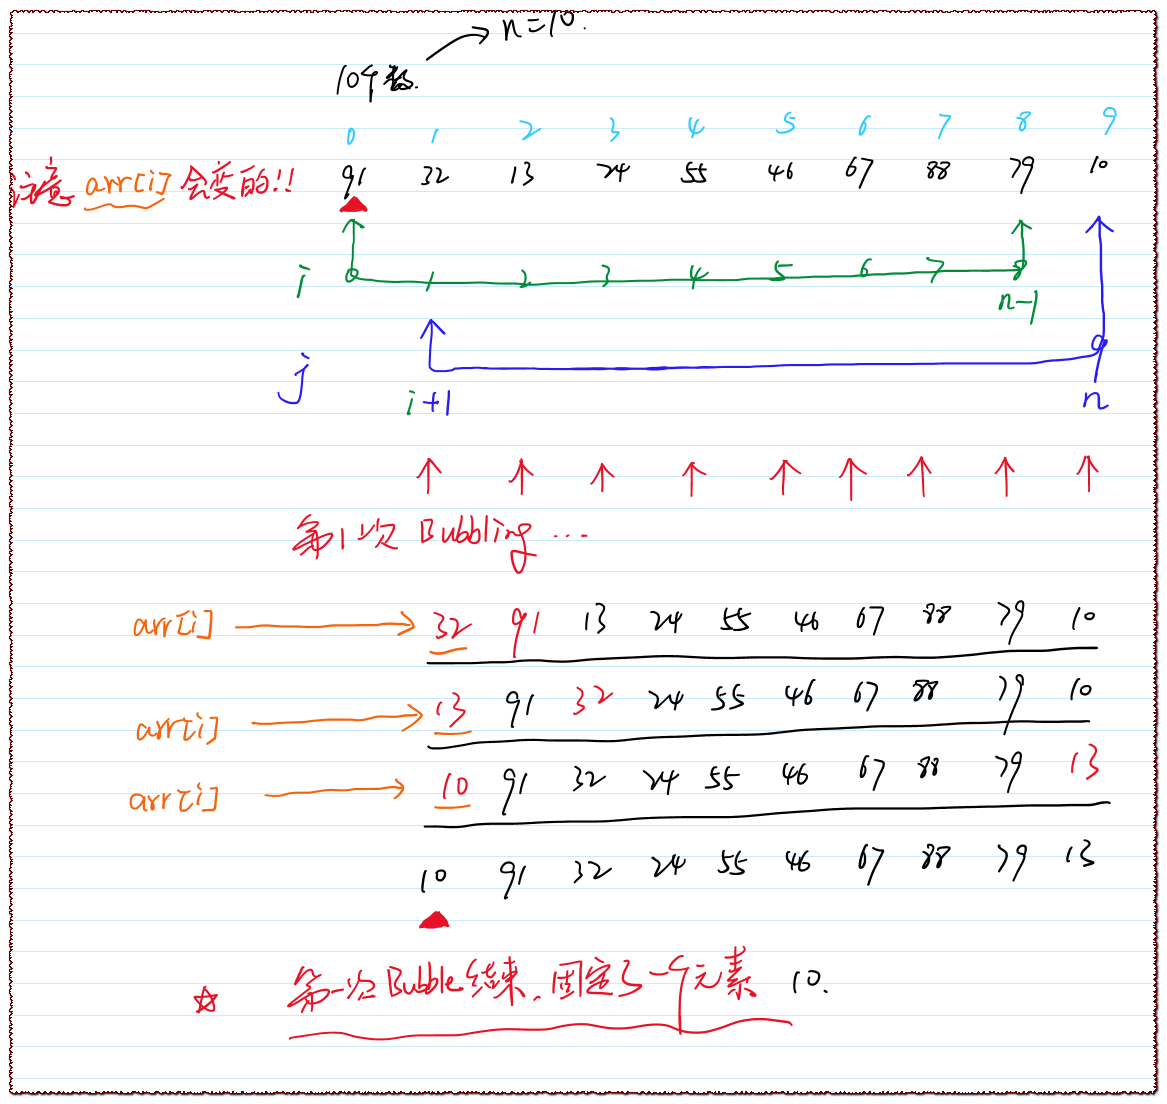 n=10.
10个数.
0 1 2 3 4 5 6 7 8 9
注意 arr[i] 会变的!! 91 32 13 24 55 46 67 88 79 10
i 0 1 2 3 4 5 6 7 8
n-1
j
i+1 n
第1次 Bubbling ...
arr[i] 32 91 13 24 55 46 67 88 79 10
arr[i] 13 91 32 24 55 46 67 88 79 10
arr[i] 10 91 32 24 55 46 67 88 79 13
10 91 32 24 55 46 67 88 79 13
第一次Bubble结束,固定了一个元素 10.